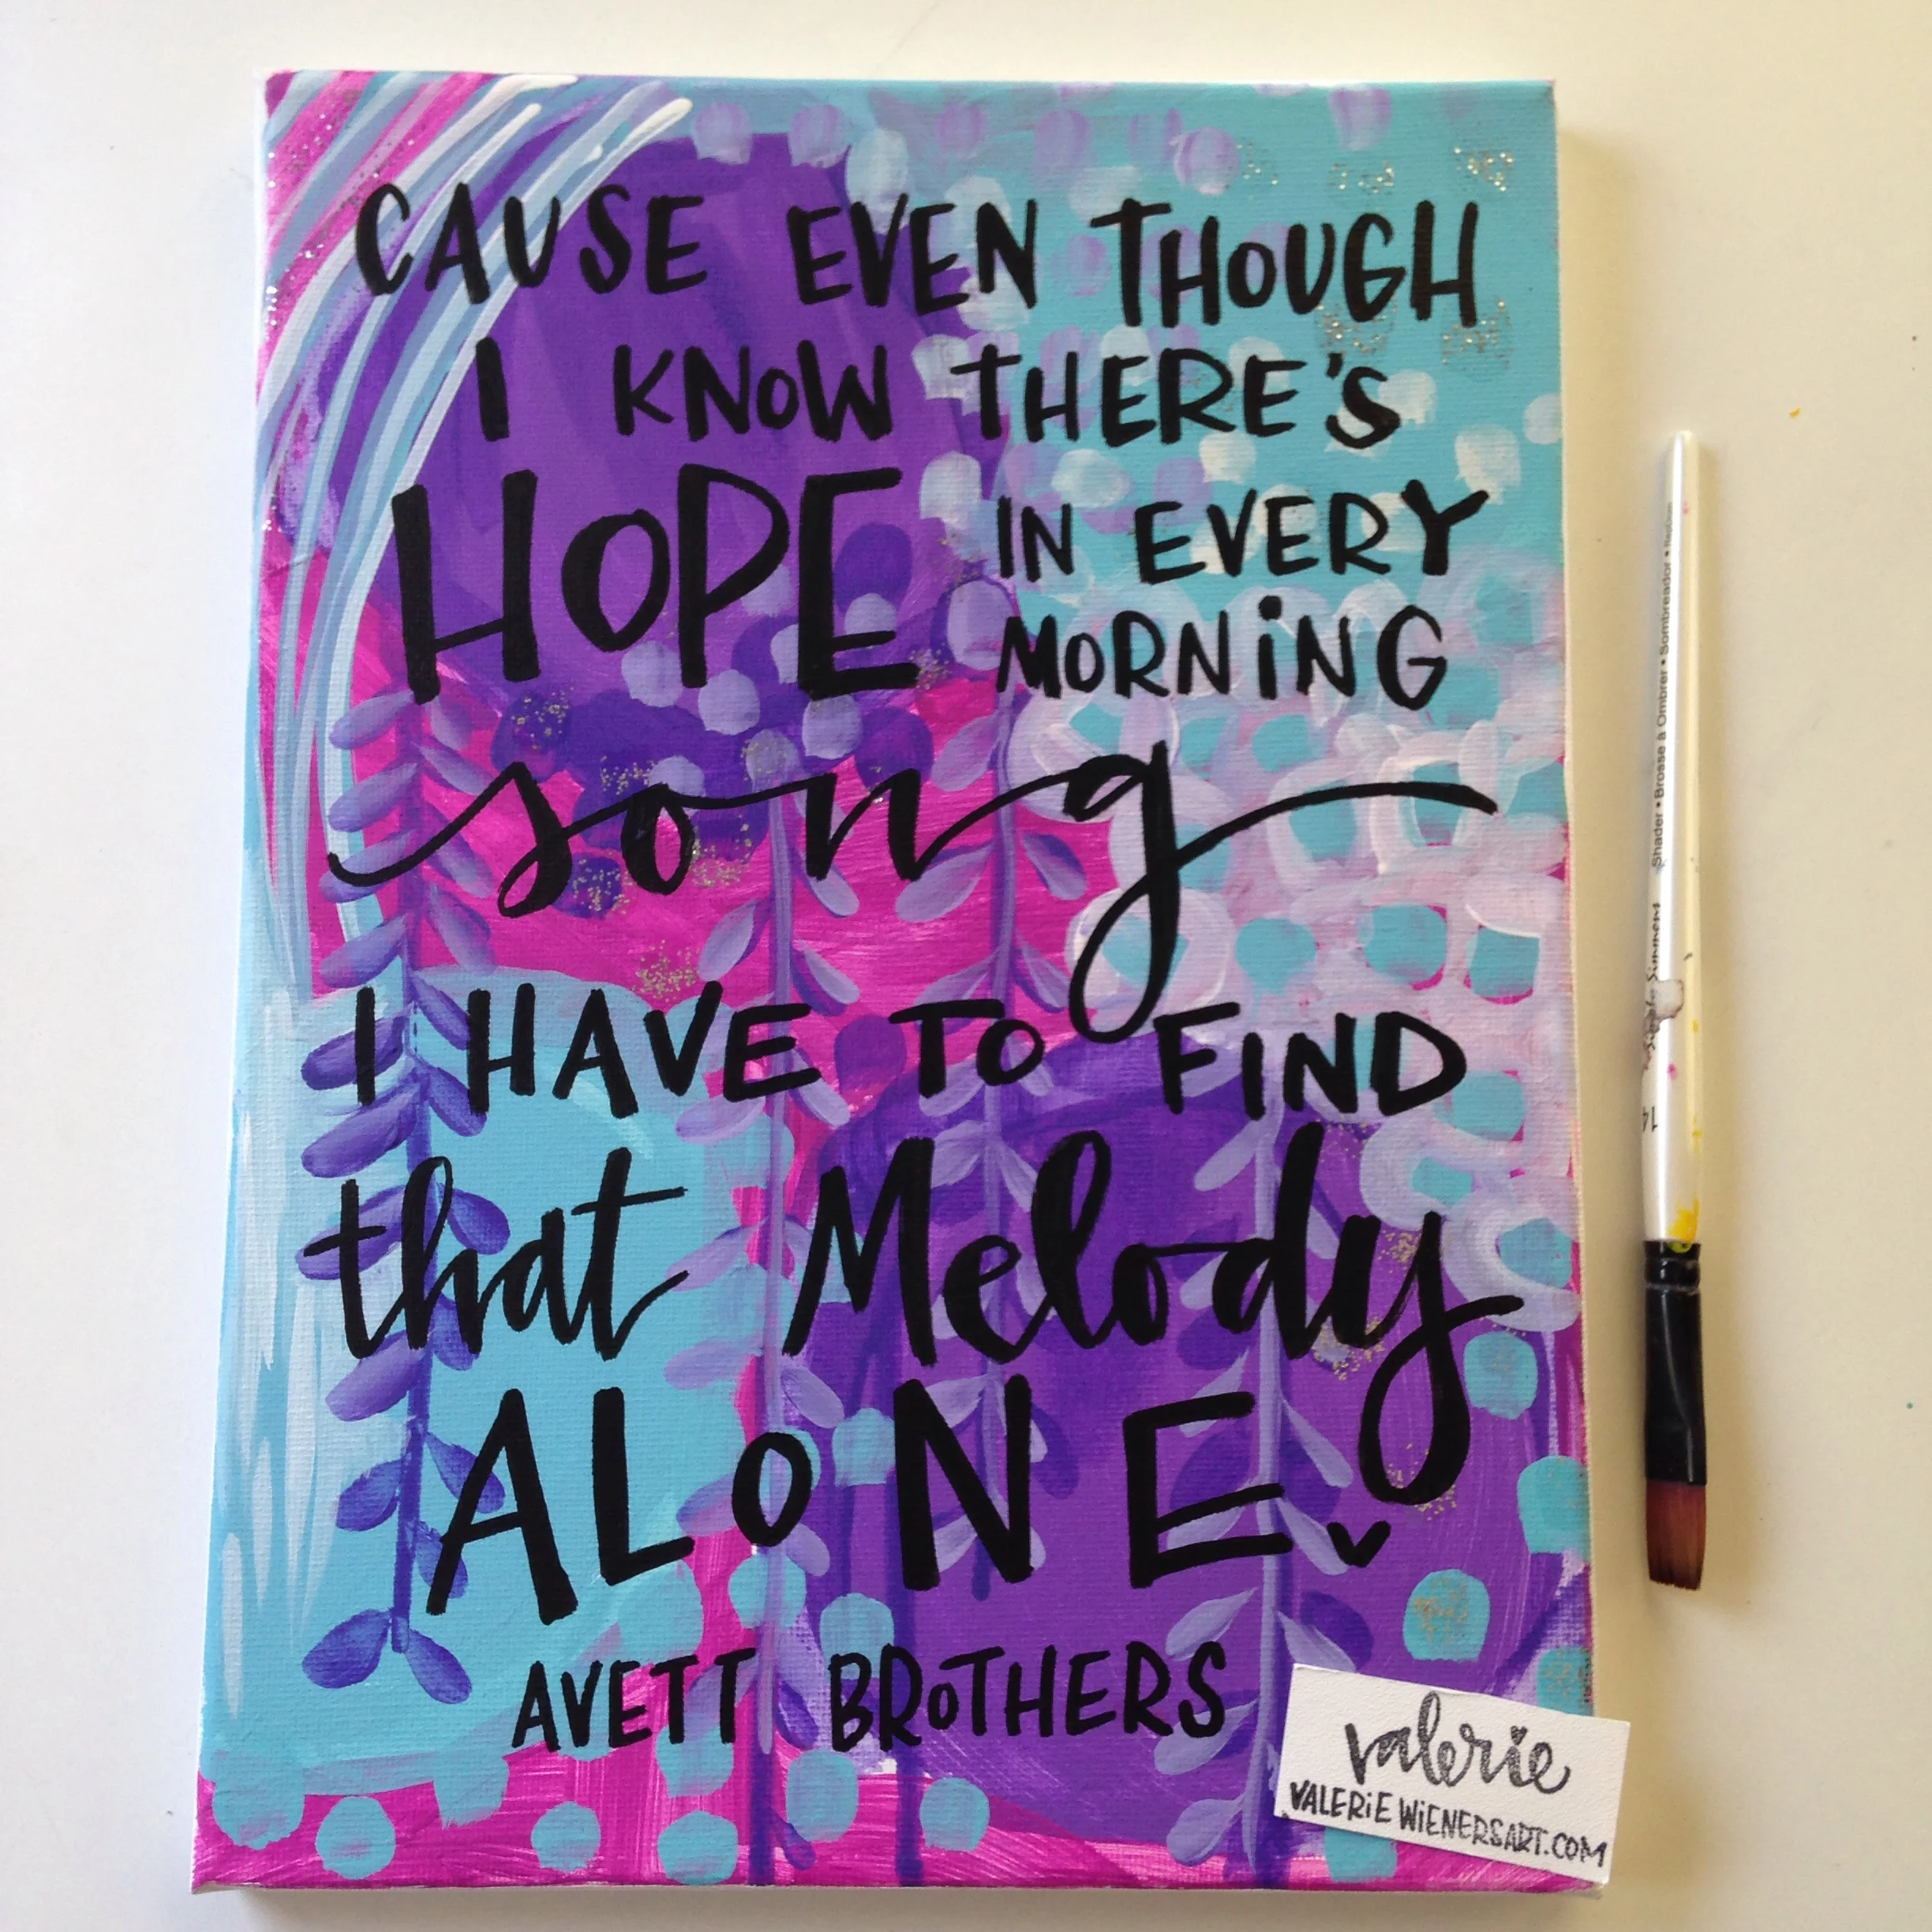 CAUSE EVEN THOUGH
I KNOW THERE'S
HOPE IN EVERY
MORNING
song
I HAVE TO FIND
that Melody
ALONE
AVETT BROTHERS
valerie
VALERIEWIENERSART.COM
Shader • Brosse à Ombrer • Sombreador •
14